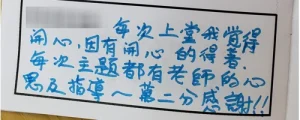 每次上堂我覺得
開心,因有開心的得着.
每次主題都有老師的心
思及指導～第二分感謝!!